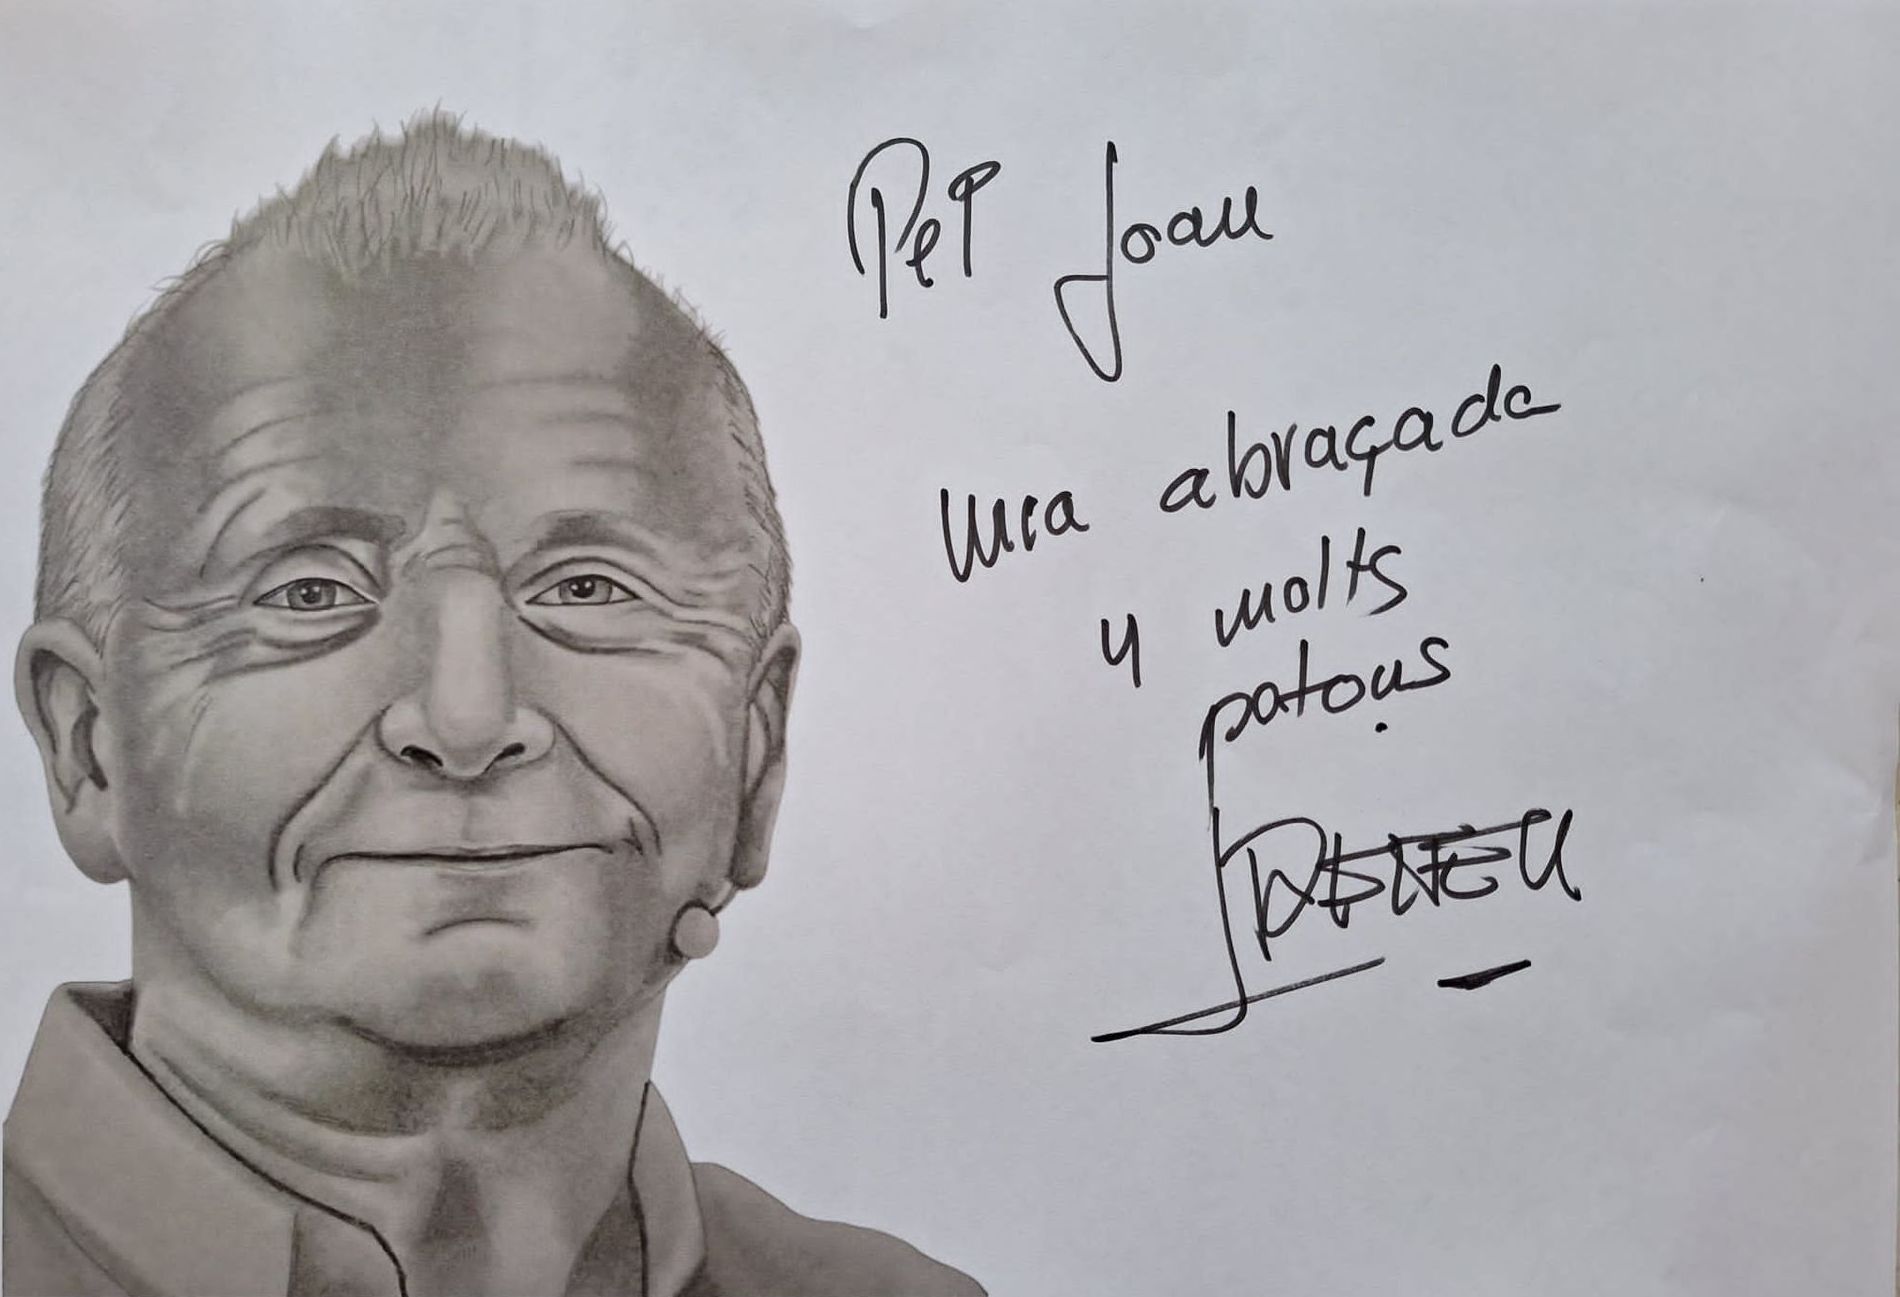 Pel Joan
una abraçada
y molts
patous